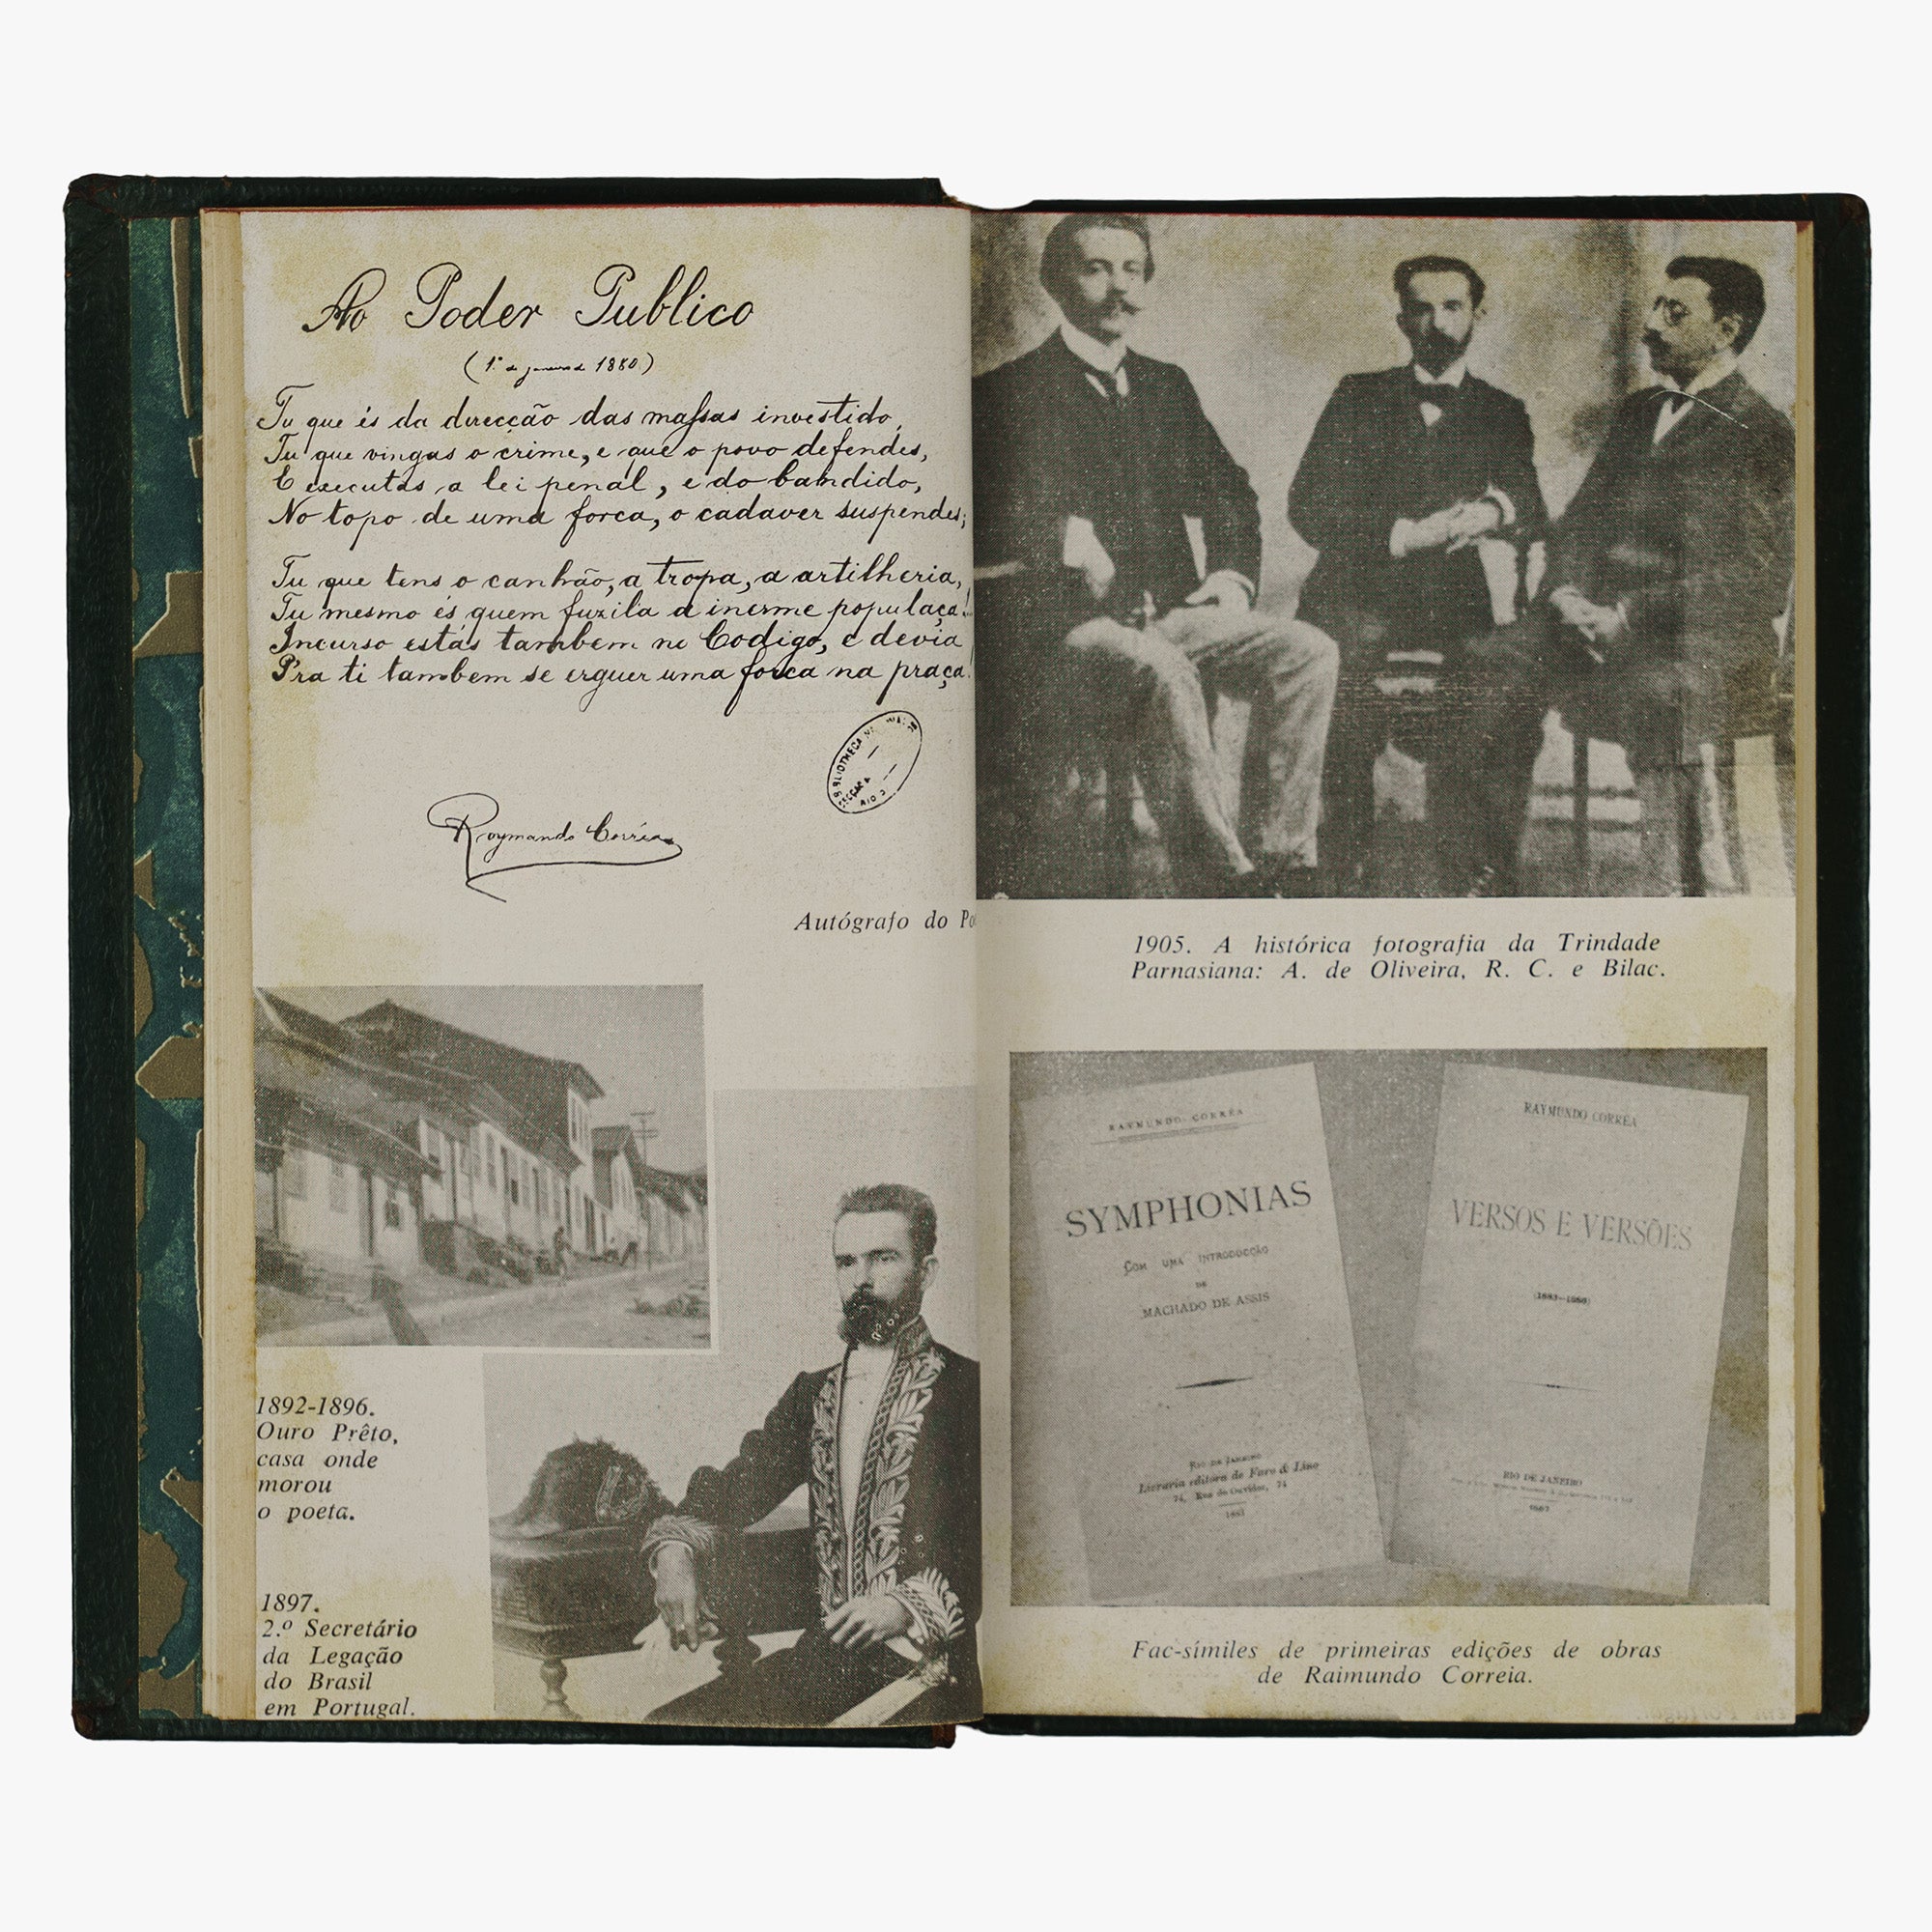 Ao Poder Publico
(1º de janeiro de 1880)
Tu que és da direcção das massas investido,
Tu que vingas o crime, e que o povo defendes,
E executas a lei penal, e do bandido,
No topo de uma forca, o cadaver suspendes;
Tu que tens o canhão, a tropa, a artilheria,
Tu mesmo és quem fuzila a inerme populaça!
Incurso estás tambem no Codigo, e devia
Pra ti tambem se erguer uma forca na praça!
BIBLIOTHECA
SECÇÃO
RIO
Raymundo Corrêa
Autógrafo do Po
1892-1896.
Ouro Prêto,
casa onde
morou
o poeta.
1897.
2.º Secretário
da Legação
do Brasil
em Portugal.
1905. A histórica fotografia da Trindade
Parnasiana: A. de Oliveira, R. C. e Bilac.
RAYMUNDO CORRÊA
SYMPHONIAS
COM UMA INTRODUCÇÃO
DE
MACHADO DE ASSIS
RIO DE JANEIRO
Livraria editora de Faro & Lino
74, Rua do Ouvidor, 74
1883
RAYMUNDO CORRÊA
VERSOS E VERSÕES
(1883-1886)
RIO DE JANEIRO
1887
Fac-símiles de primeiras edições de obras
de Raimundo Correia.